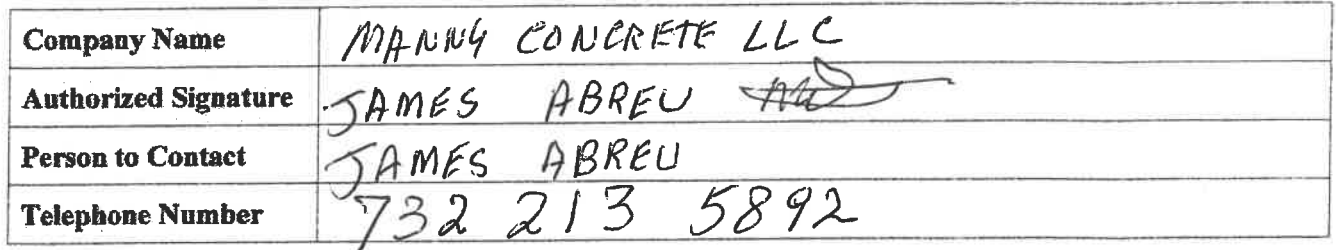 Company Name MANNY CONCRETE LLC
Authorized Signature JAMES ABREU
Person to Contact JAMES ABREU
Telephone Number 732 213 5892